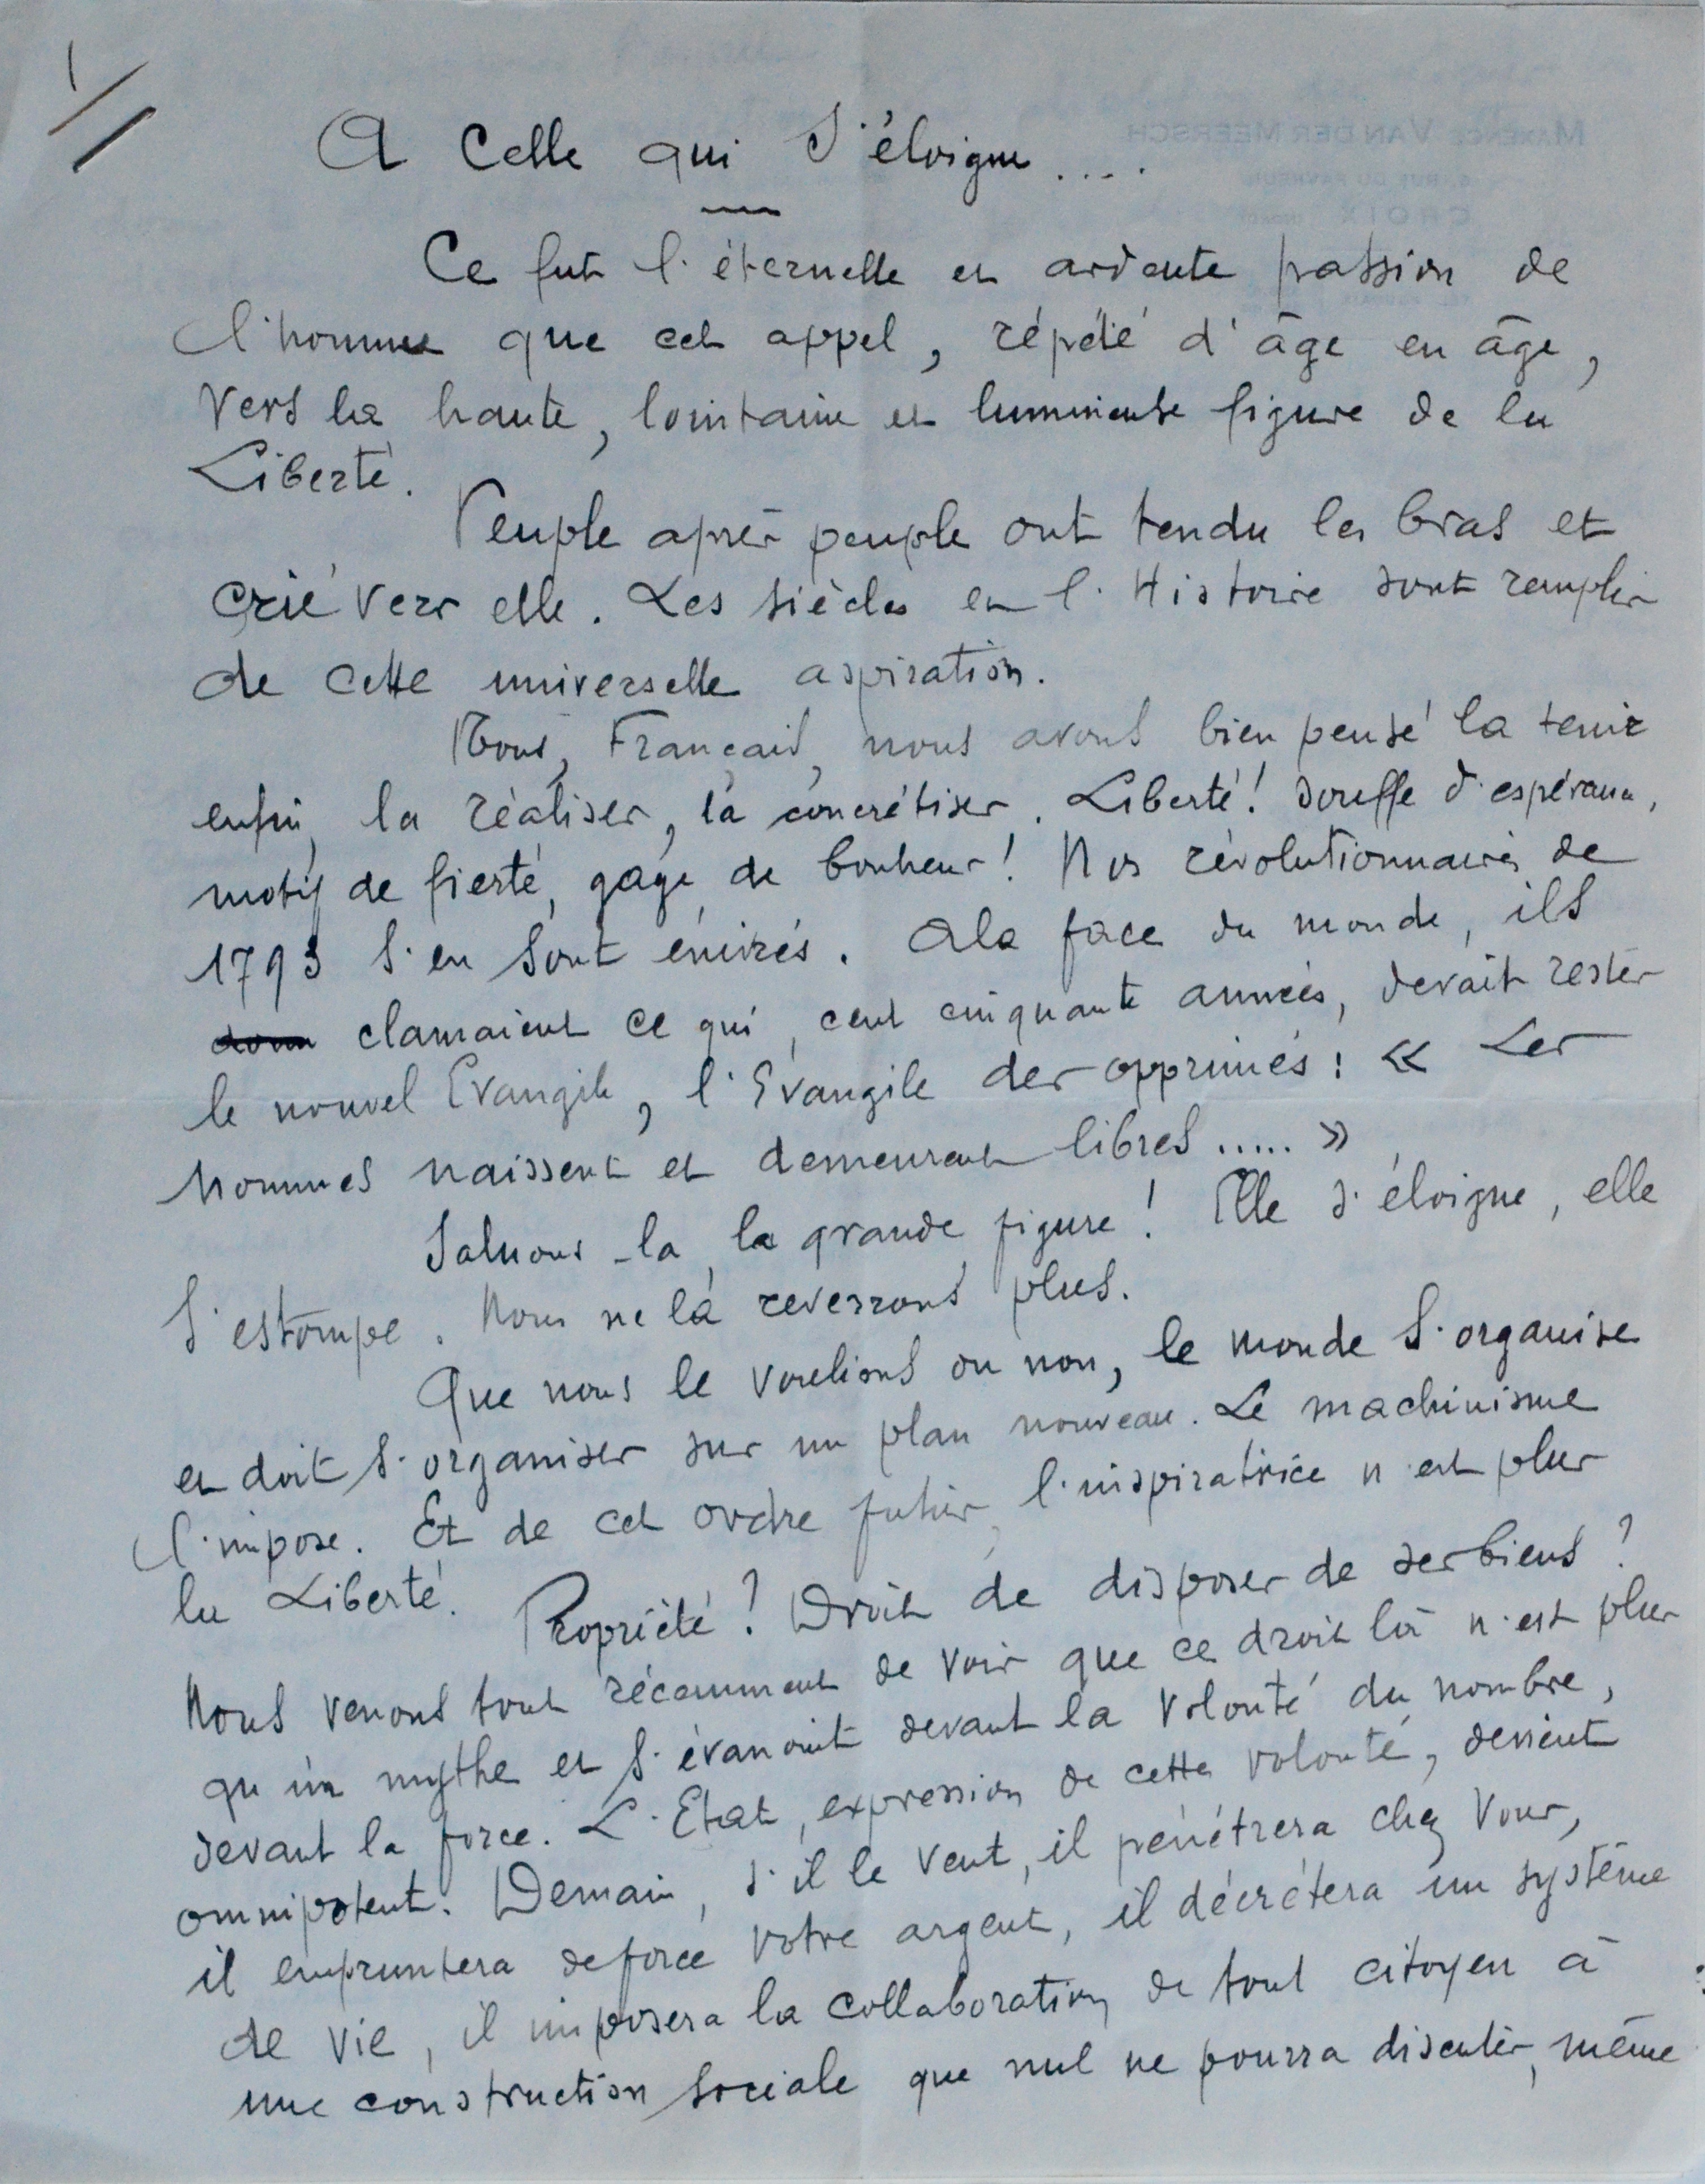 1/
A Celle qui s'éloigne....
Ce fut l'éternelle et ardente passion de
l'homme que cet appel, répété d'âge en âge,
vers la haute, lointaine et lumineuse figure de la
Liberté.
Peuple après peuple ont tendu les bras et
crié vers elle. Les siècles et l'Histoire sont remplis
de cette universelle aspiration.
Nous, Français, nous avons bien pensé la tenir
enfin, la réaliser, la concrétiser. Liberté! souffle d'espérance,
motif de fierté, gage de bonheur! Nos révolutionnaires de
1793 s'en sont enivrés. A la face du monde, ils
clamaient ce qui, cent cinquante années, devait rester
le nouvel Evangile, l'Evangile des opprimés: « Les
hommes naissent et demeurent libres ..... »
Saluons-la, la grande figure! Elle s'éloigne, elle
s'estompe. Nous ne la reverrons plus.
Que nous le voulions ou non, le monde s'organise
et doit s'organiser sur un plan nouveau. Le machinisme
l'impose. Et de cet ordre futur, l'inspiratrice n'est plus
la Liberté.
Propriété? Droit de disposer de ses biens?
Nous venons tout récemment de voir que ce droit là n'est plus
qu'un mythe et s'évanouit devant la volonté du nombre,
devant la force. L'Etat, expression de cette volonté, devient
omnipotent. Demain, s'il le veut, il pénétrera chez vous,
il empruntera de force votre argent, il décrétera un système
de vie, il imposera la collaboration de tout citoyen à
une construction sociale que nul ne pourra discuter, même
MAXENCE VAN DER MEERSCH
CROIX